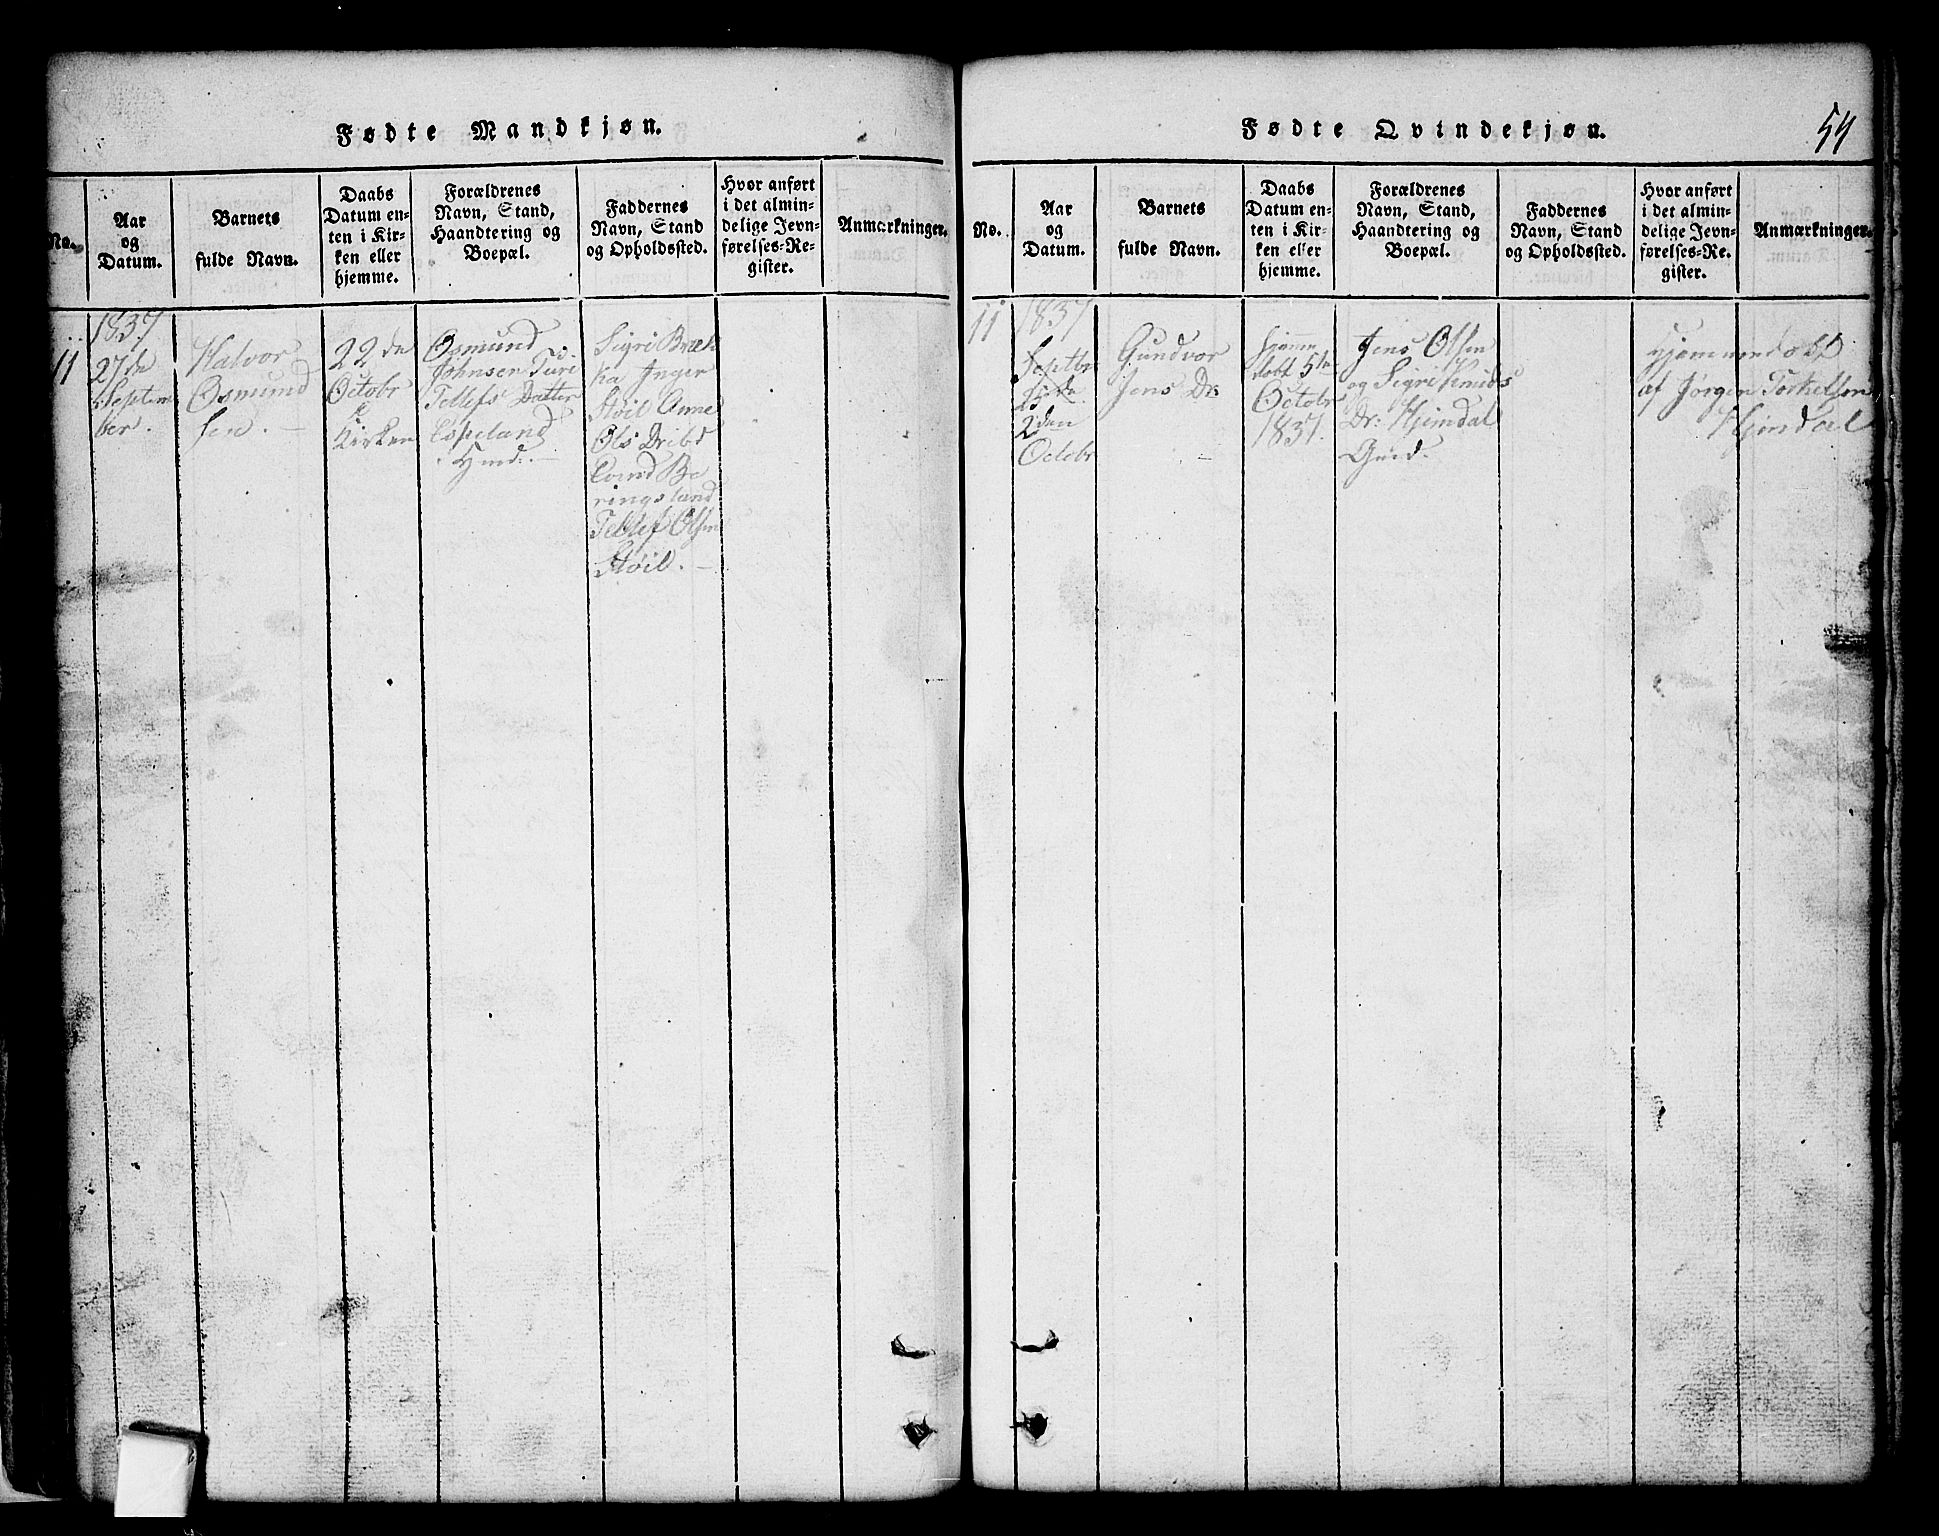 Fødte Mandkjøn.
No.
Aar
og
Datum.
Barnets
fulde Navn.
Daabs
Datum en-
ten i Kir-
ken eller
hjemme.
Forældrenes
Navn, Stand,
Haandtering og
Boepæl.
Faddernes
Navn, Stand
og Opholdssted.
Hvor anført
i det almin-
delige Jevn-
førelses-Re-
gister.
Anmærkninger.
11
1837
27de
Septem
ber.
Halvor
Osmund
sen. —
22de
Octobr
Kirken
Osmund
Johnsen Turi
Tellefs Datter
Espeland
Sigri Bræk
ka Inger
Støil Anne
Ols Dr
Be
ringsland
Tellef Olsen
Støil. —
Fødte Qvindekjøn.
54
No.
Aar
og
Datum.
Barnets
fulde Navn.
Daabs
Datum en-
ten i Kir-
ken eller
hjemme.
Forældrenes
Navn, Stand,
Haandtering og
Boepæl.
Faddernes
Navn, Stand
og Opholdssted.
Hvor anført
i det almin-
delige Jevn-
førelses-Re-
gister.
Anmærkninger.
11
1837
Septbr
2den
Octobr
Gundvor
Jens Dr.
Hjemme
døbt 5te
Octobr
1837.
Jens Olsen
og Sigri Knuds
Dr: Hjemdal
Hjemmedøbt
af Jørgen Torkelsen